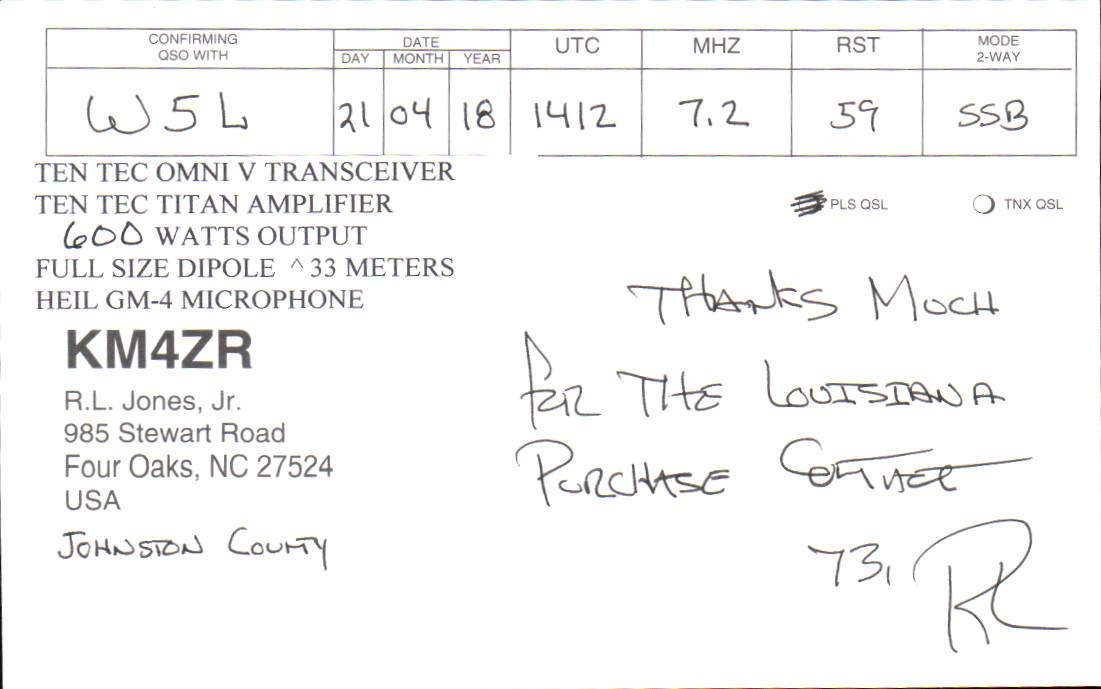 CONFIRMING QSO WITH
DATE
DAY MONTH YEAR
UTC
MHZ
RST
MODE 2-WAY
W5L 21 04 18 1412 7.2 59 SSB
TEN TEC OMNI V TRANSCEIVER
TEN TEC TITAN AMPLIFIER
PLS QSL TNX QSL
600 WATTS OUTPUT
FULL SIZE DIPOLE ^ 33 METERS
HEIL GM-4 MICROPHONE
KM4ZR
R.L. Jones, Jr.
985 Stewart Road
Four Oaks, NC 27524
USA
JOHNSTON COUNTY
THANKS MUCH
FOR THE LOUISIANA
PURCHASE CONTACT
73, RL